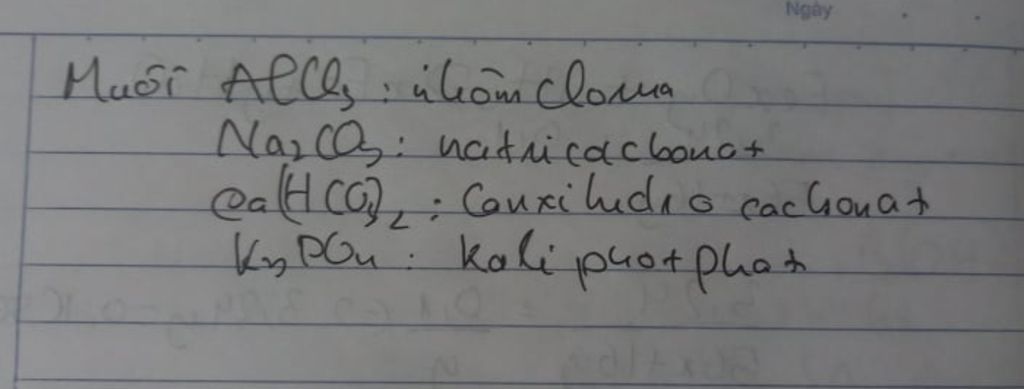 Ngày
Muối AlCl₃ : nhôm clorua
Na₂CO₃ : natri cacbonat
Ca(HCO₃)₂ : Canxi hidro cacbonat
K₃PO₄ : kali photphat